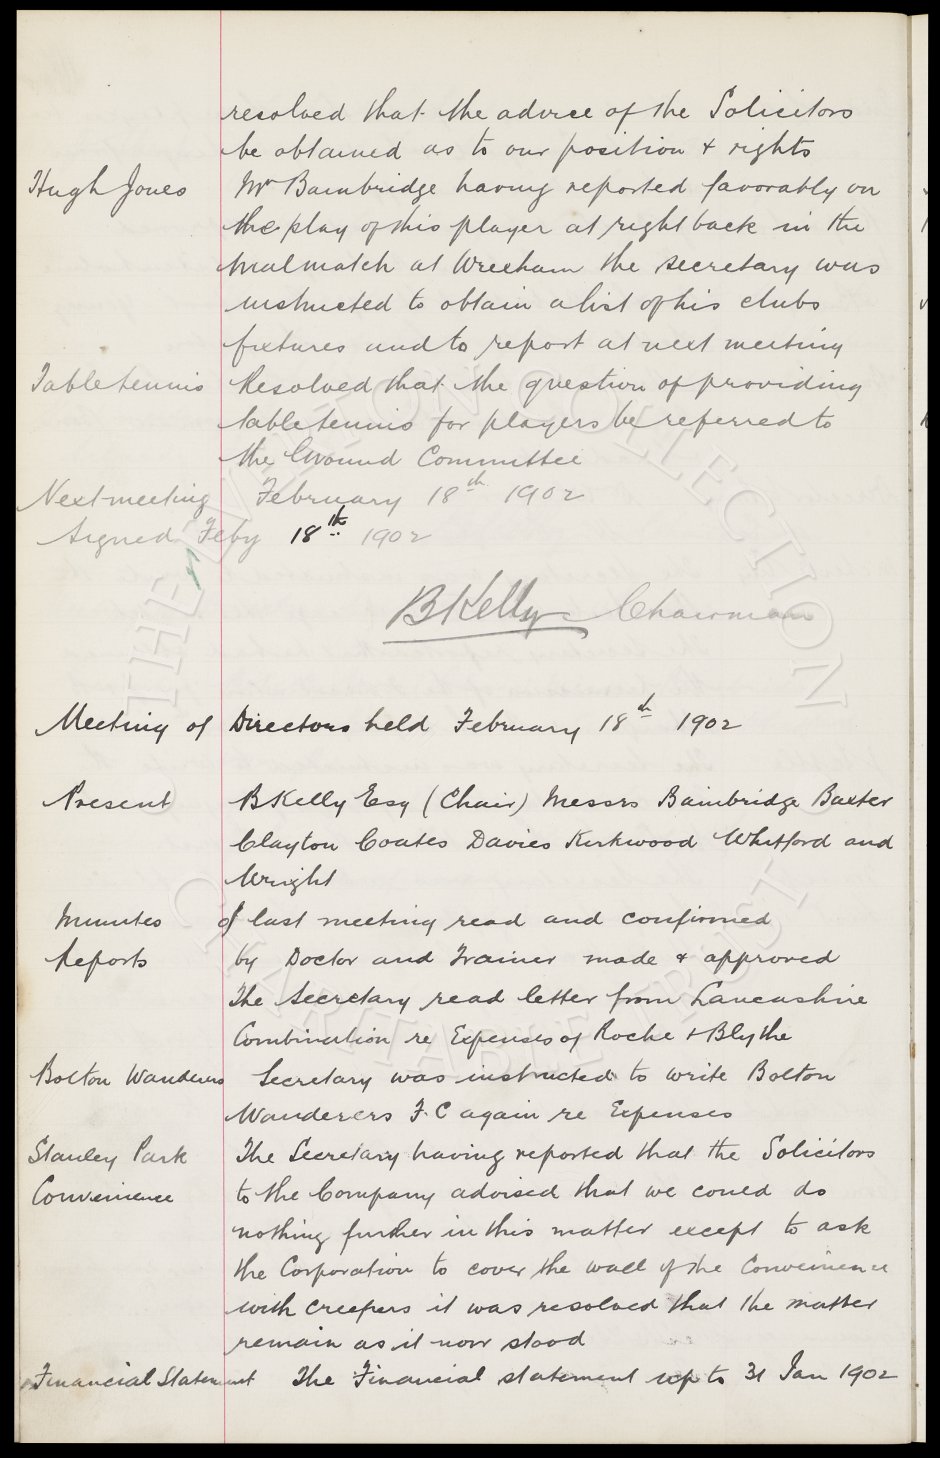 resolved that the advice of the Solicitors
be obtained as to our position & rights
Hugh Jones Mr Bainbridge having reported favorably on
the play of this player at right back in the
trial match at Wrexham the secretary was
instructed to obtain a list of his clubs
fixtures and to report at next meeting
Table tennis Resolved that the question of providing
table tennis for players be referred to
the Ground Committee
Next meeting February 18th 1902
Signed Feby 18th 1902
BKelly Chairman
Meeting of Directors held February 18th 1902
Present B Kelly Esq (Chair) Messrs Bainbridge Baxter
Clayton Coates Davies Kirkwood Whitford and
Wright
Minutes of last meeting read and confirmed
Reports by Doctor and Trainer made & approved
The Secretary read letter from Lancashire
Combination re Expenses of Roche & Blythe
Bolton Wanderers Secretary was instructed to write Bolton
Wanderers F.C again re Expenses
Stanley Park The Secretary having reported that the Solicitors
Convenience to the Company advised that we could do
nothing further in this matter except to ask
the Corporation to cover the wall of the Convenience
with creepers it was resolved that the matter
remain as it now stood
Financial Statement The Financial statement up to 31 Jan 1902
THE EVERTON COLLECTION
CHARITABLE TRUST